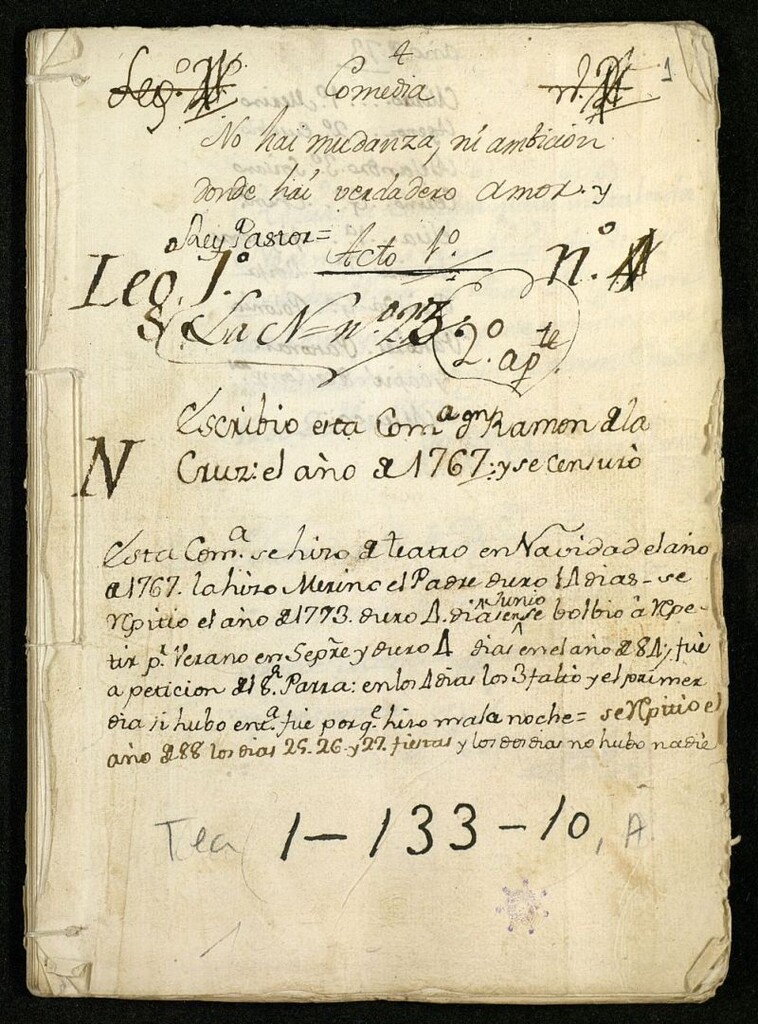 4
Leg.º
Comedia
1
No hai mudanza, ni ambicion
donde hai verdadero amor. y
Rey Pastor=
Acto 1.º
Leg. 1.º
n.º 4
La N= n.º 23.
2.º apte
Escribio esta Com.a Ramon de la
N
Cruz: el año de 1767: y se censuró
Esta Com.a se hizo de teatro en Navidad el año
de 1767. la hizo Merino el Padre duro 14 dias - se
repitio el año de 1773. duro 4. dias en Junio se bolbio à repe-
tir p.r Verano en Sepre y duro 4 dias en el año de 84, y fue
a peticion de la S.a Parra: en los 4 dias los 3 falto y el primer
dia si hubo ent.a fue porq.e hizo mala noche= se repitio el
año de 88 los dias 25. 26. y 27. fiestas y los dos dias no hubo nadie
Tea 1-133-10, A